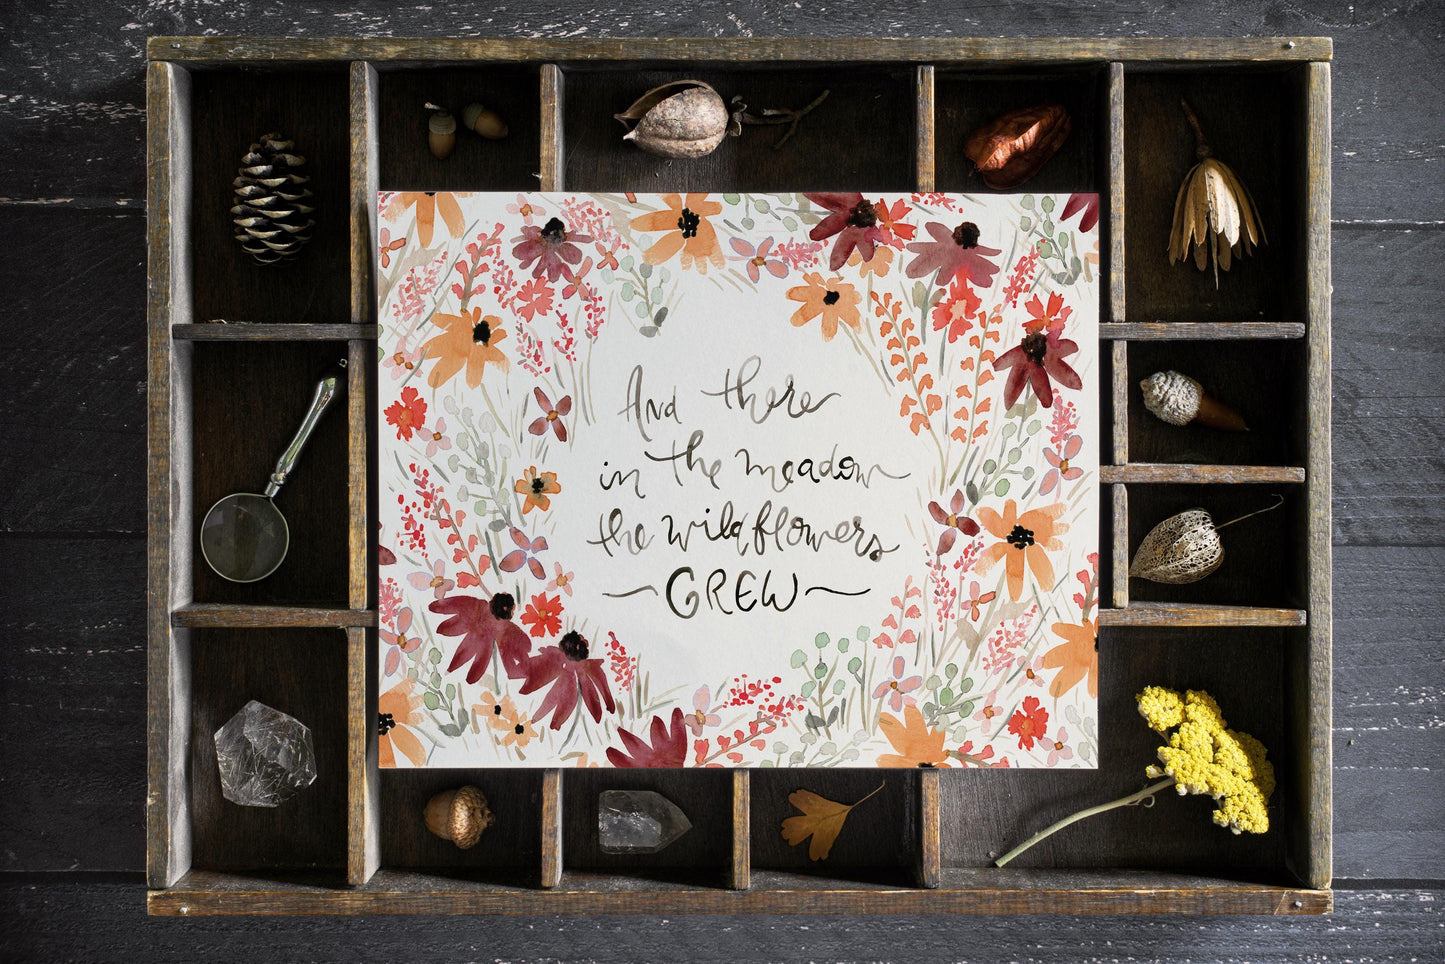 And there
in the meadow
the wildflowers
GREW